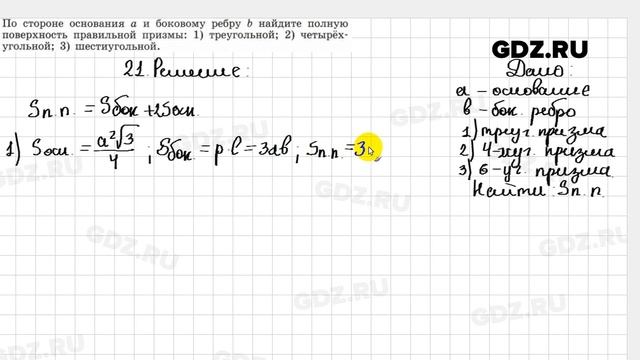 По стороне основания a и боковому ребру b найдите полную
поверхность правильной призмы: 1) треугольной; 2) четырёх-
угольной; 3) шестиугольной.
GDZ.RU
21. Решение:
Sп.п. = Sбок + 2Sосн.
1) Sосн. = a²√3/4 ; Sбок = p·l = 3ab ; Sп.п. = 3
Дано:
a – основание
b – бок. ребро
1) треуг. призма
2) 4-хуг. призма
3) 6-уг. призма
Найти: Sп.п.
GDZ.RU
GDZ.RU
GDZ.RU
GDZ.RU
GDZ.RU
GDZ.RU